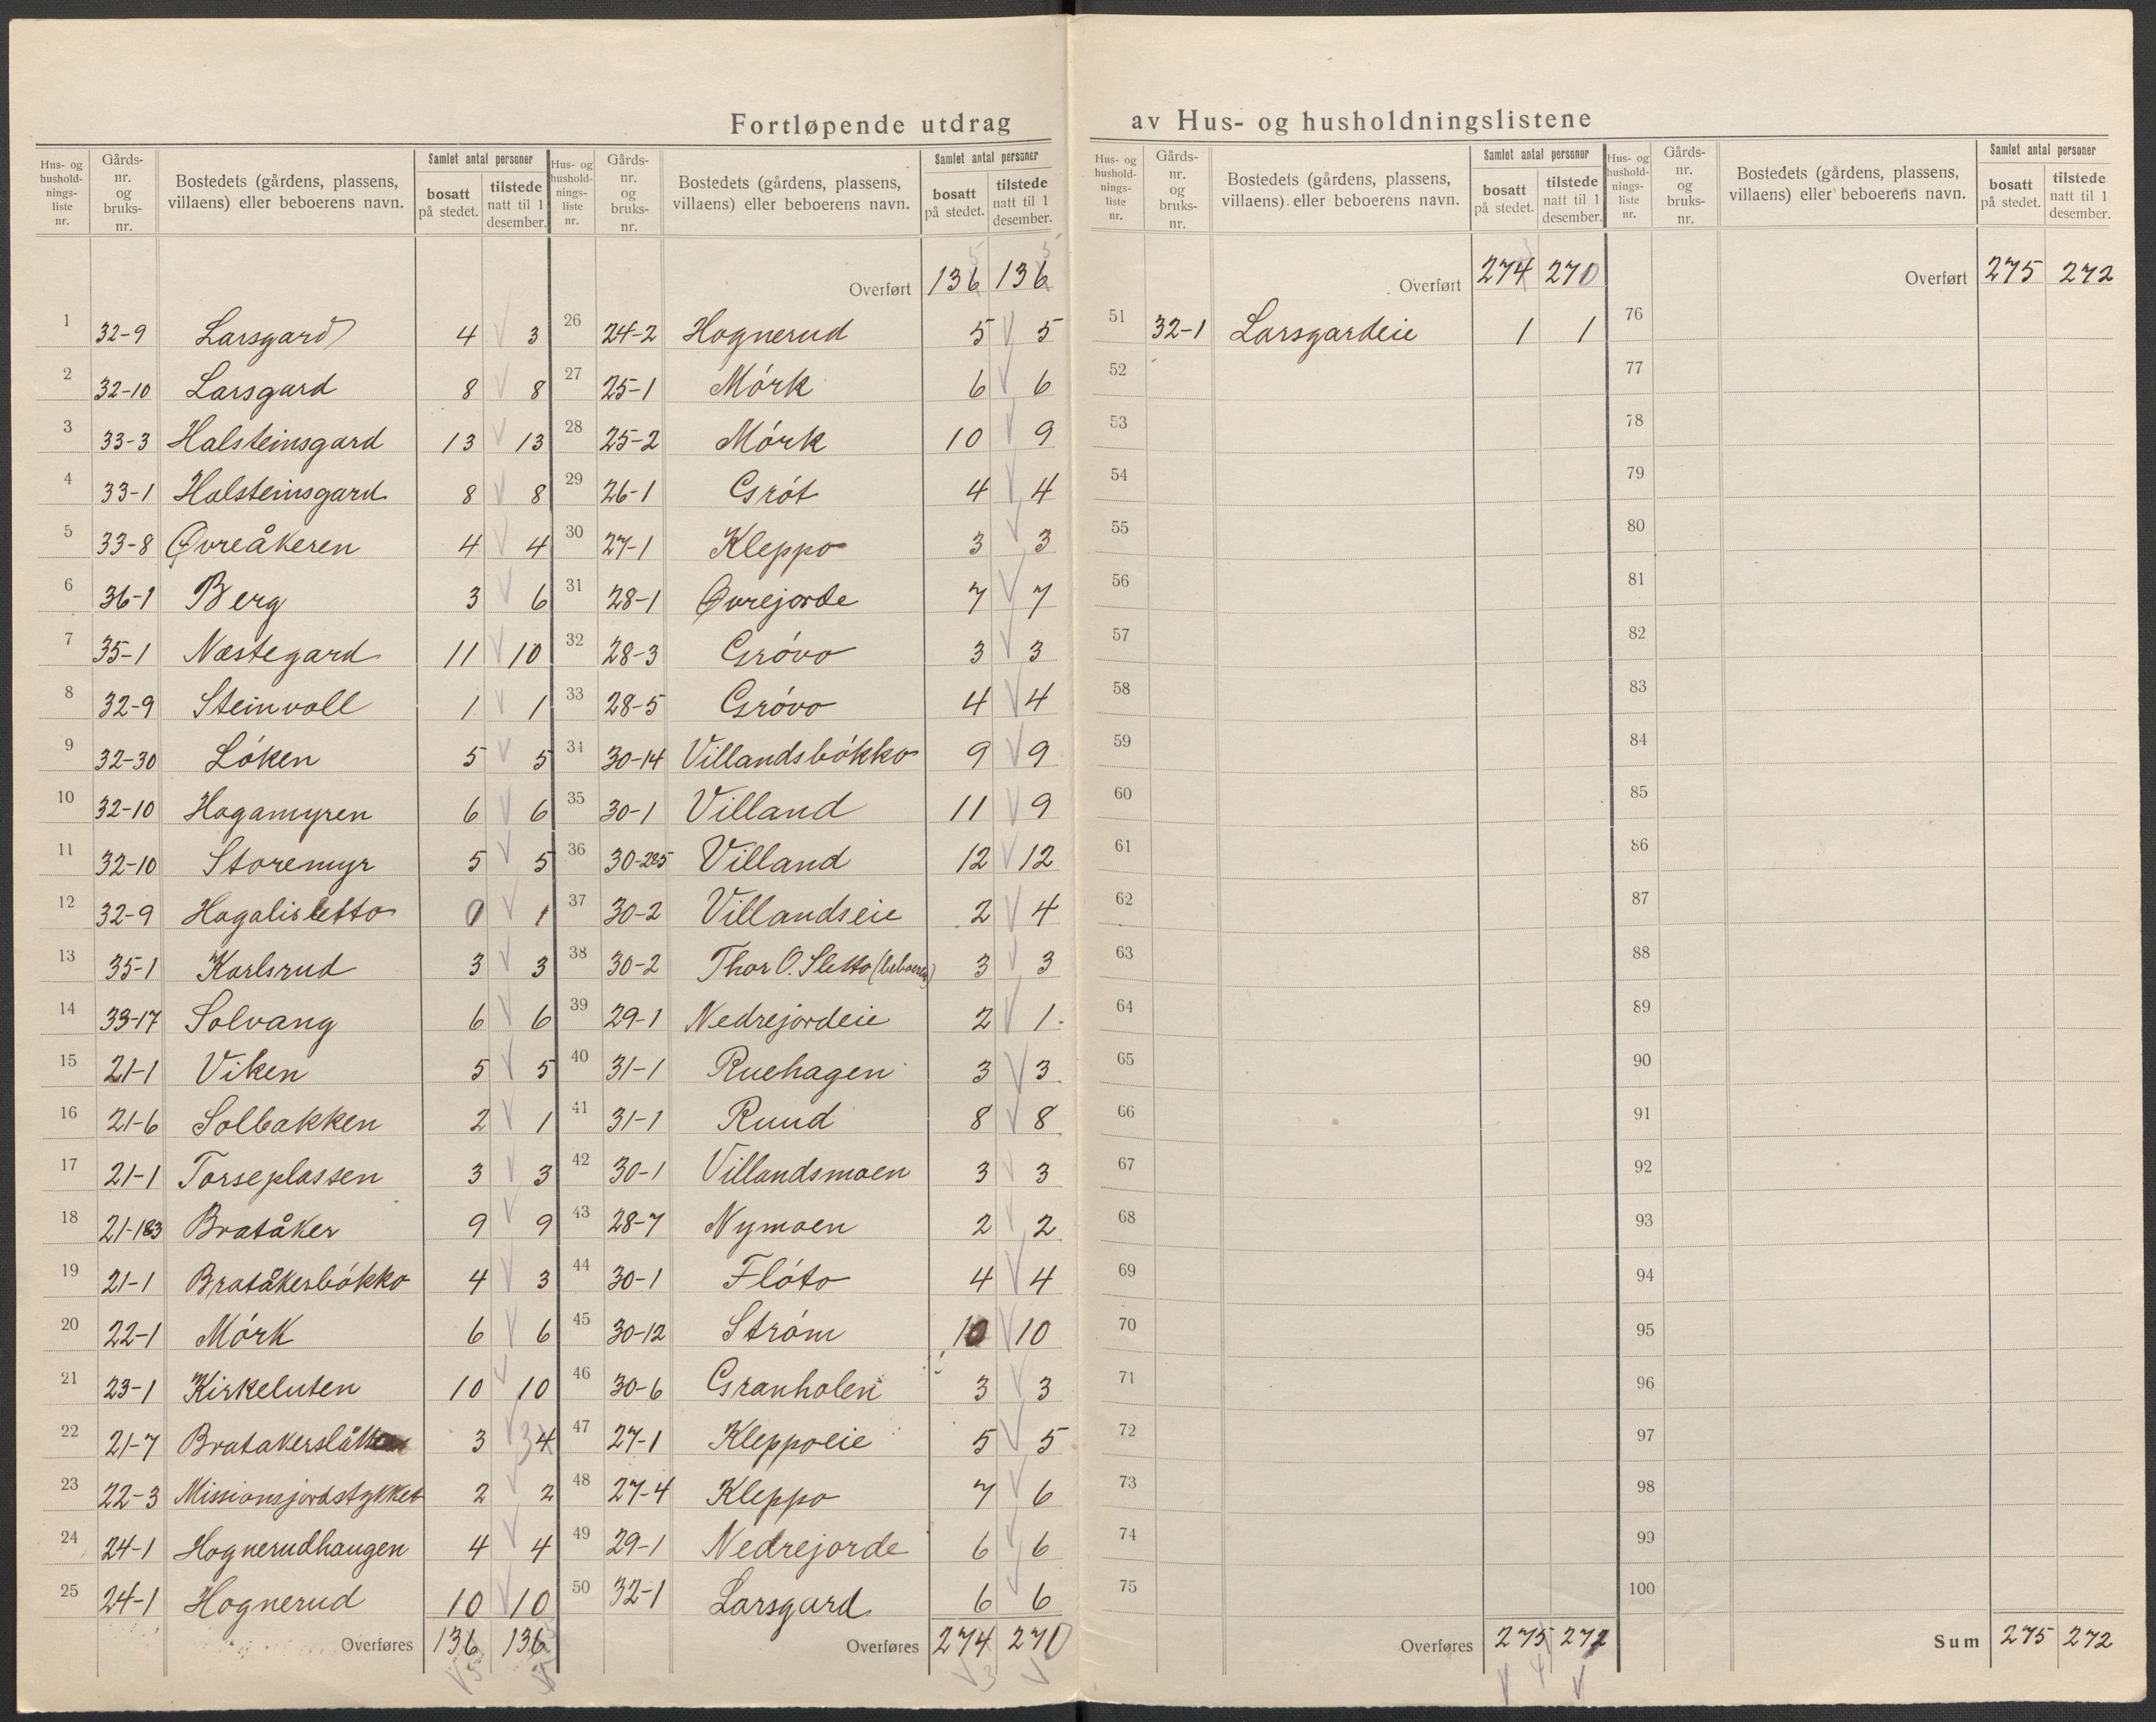 Fortløpende utdrag av Hus- og husholdningslistene
Hus- og husholdnings-liste nr. | Gårds-nr. og bruks-nr. | Bostedets (gårdens, plassens, villaens) eller beboerens navn. | Samlet antal personer | bosatt på stedet. | tilstede natt til 1 desember.
1 32-9 Larsgard 4 3
2 32-10 Larsgard 8 8
3 33-3 Halsteinsgard 13 13
4 33-1 Halsteinsgard 8 8
5 33-8 Øvreåkeren 4 4
6 36-1 Berg 3 6
7 35-1 Næstegard 11 10
8 32-9 Steinvoll 1 1
9 32-30 Lóken 5 5
10 32-10 Hagamyren 6 6
11 32-10 Storemyr 5 5
12 32-9 Hagalisletto 0 1
13 35-1 Karlsrud 3 3
14 33-17 Solvang 6 6
15 21-1 Viken 5 5
16 21-6 Solbakken 2 1
17 21-1 Torseplassen 3 3
18 21-183 Bratåker 9 9
19 21-1 Bratåkerbókko 4 3
20 22-1 Mórk 6 6
21 23-1 Kirkeluten 10 10
22 21-7 3 4 3
23 22-3 Missionsjordstykket 2 2
24 24-1 Hognerudhaugen 4 4
25 24-1 Hognerud 10 10
Overføres 136 136
5 5
Hus- og hushold-nings-liste nr. | Gårds-nr. og bruks-nr. | Bostedets (gårdens, plassens, villaens) eller beboerens navn. | Samlet antal personer | bosatt på stedet. | tilstede natt til 1 desember.
5 5
Overført 136 136
26 24-2 Hognerud 5 5
27 25-1 Mórk 6 6
28 25-2 Mórk 10 9
29 26-1 Grót 4 4
30 27-1 Kleppo 3 3
31 28-1 Øvrejorde 7 7
32 28-3 Gróvo 3 3
33 28-5 Gróvo 4 4
34 30-14 Villandsbókko 9 9
35 30-1 Villand 11 9
36 30-285 Villand 12 12
37 30-2 Villandseie 2 4
38 30-2 Thor O. Sletto (beboeren) 3 3
39 29-1 Nedrejordeie 2 1
40 31-1 Ruehagen 3 3
41 31-1 Ruud 8 8
42 30-1 Villandsmoen 3 3
43 28-7 Nymoen 2 2
44 30-1 Flóto 4 4
45 30-12 Stróm 10 10
46 30-6 Granholen 3 3
47 27-1 Kleppoeie 5 5
48 27-4 Kleppo 7 6
49 29-1 Nedrejorde 6 6
50 32-1 Larsgard 6 6
Overføres 274 270
3
Hus- og hushold-nings-liste nr. | Gårds-nr. og bruks-nr. | Bostedets (gårdens, plassens, villaens) eller beboerens navn. | Samlet antal personer | bosatt på stedet. | tilstede natt til 1 desember.
3
Overført 274 270
51 32-1 Larsgardeie 1 1
52
53
54
55
56
57
58
59
60
61
62
63
64
65
66
67
68
69
70
71
72
73
74
75
Overføres 275 272
4
Hus- og hushold-nings-liste nr. | Gårds-nr. og bruks-nr. | Bostedets (gårdens, plassens, villaens) eller beboerens navn. | Samlet antal personer | bosatt på stedet. | tilstede natt til 1 desember.
Overført 275 272
76
77
78
79
80
81
82
83
84
85
86
87
88
89
90
91
92
93
94
95
96
97
98
99
100
Sum 275 272